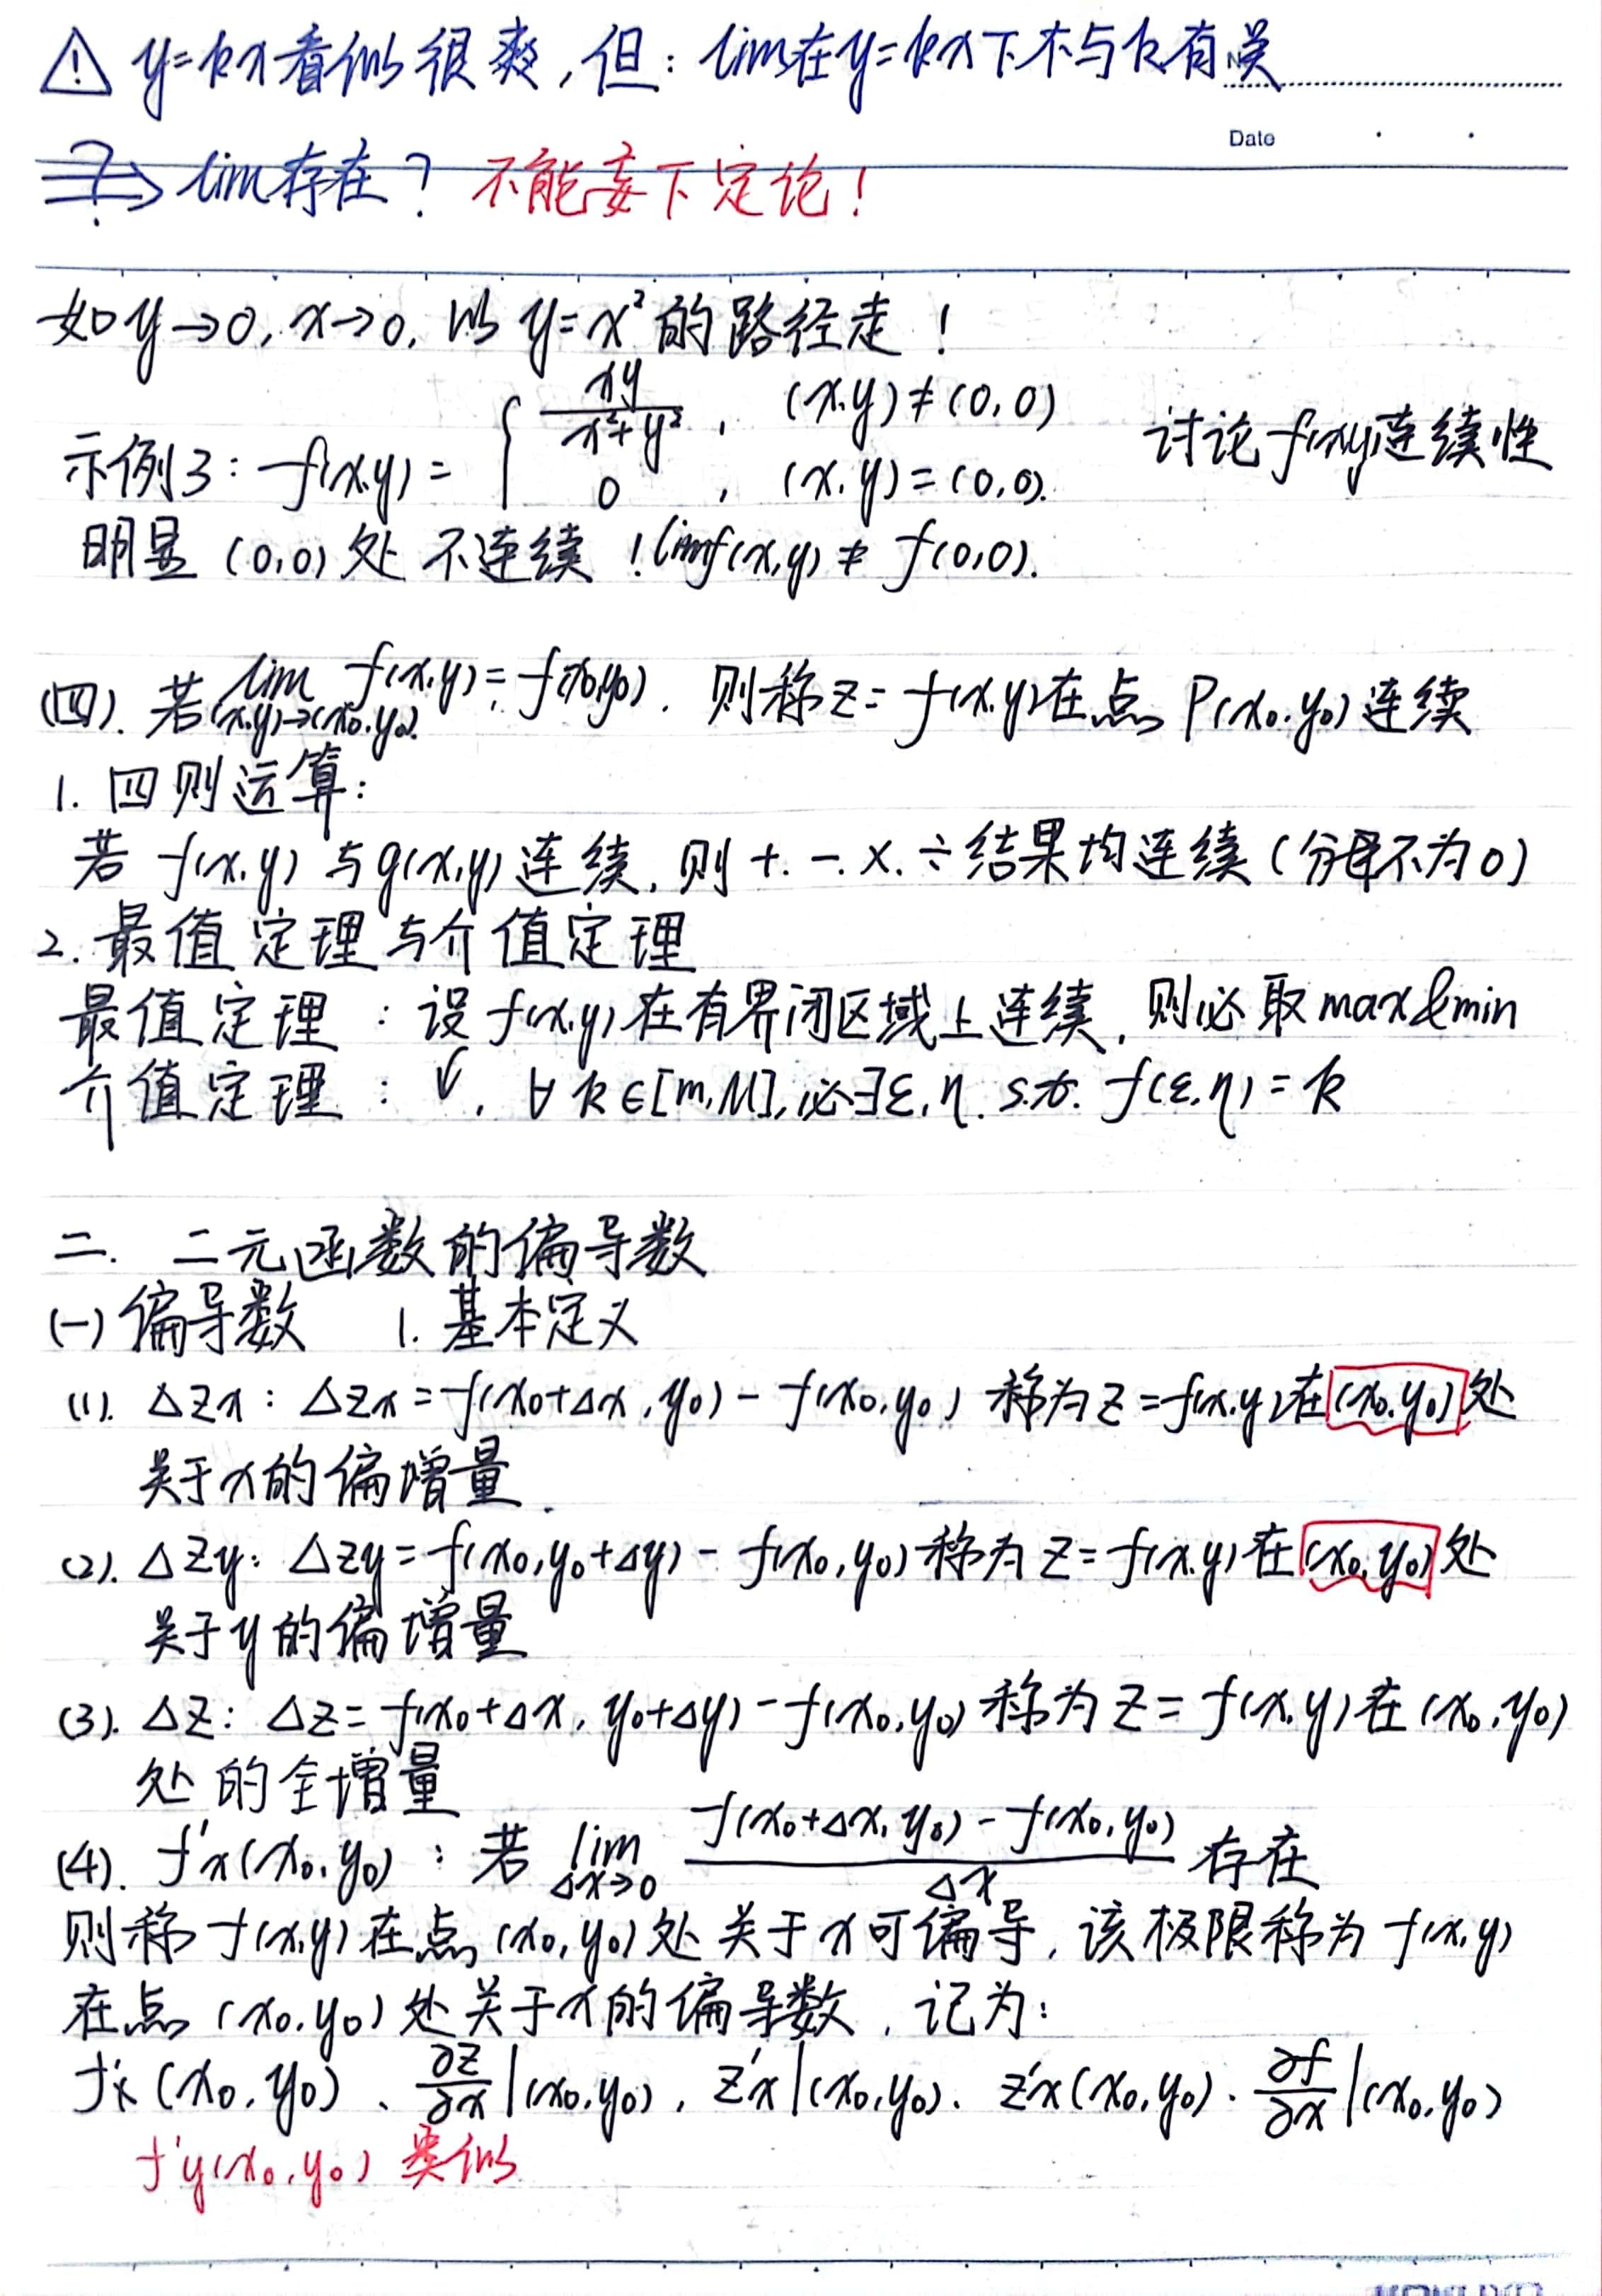 ⚠ y=kx看似很爽,但: lim在y=kx下不与k有关
Date
⇒ lim存在? 不能妄下定论!
如y→0, x→0, 以 y=x²的路径走!
示例3: f(x,y) = { xy/(x²+y²), (x,y)≠(0,0) 讨论f(x,y)连续性
0, (x,y)=(0,0).
明显 (0,0) 处 不连续! lim f(x,y) ≠ f(0,0).
(四). 若 lim (x,y)→(x₀,y₀) f(x,y) = f(x₀,y₀). 则称z=f(x,y)在点P(x₀,y₀)连续
1. 四则运算:
若 f(x,y) 与g(x,y)连续, 则 +. -. ×. ÷结果均连续(分母不为0)
2. 最值定理与介值定理
最值定理: 设f(x,y)在有界闭区域上连续, 则必取max&min
介值定理: √, ∀k∈[m,M], 必∃ε,η. s.t. f(ε,η)=k
二. 二元函数的偏导数
(一)偏导数 1. 基本定义
(1). Δzx: Δzx=f(x₀+Δx,y₀)-f(x₀,y₀) 称为z=f(x,y)在(x₀,y₀)处
关于x的偏增量.
(2). Δzy: Δzy=f(x₀,y₀+Δy)-f(x₀,y₀)称为z=f(x,y)在(x₀,y₀)处
关于y的偏增量
(3). Δz: Δz=f(x₀+Δx,y₀+Δy)-f(x₀,y₀)称为z=f(x,y)在(x₀,y₀)
处的全增量
(4). f'x(x₀,y₀): 若 lim Δx→0 (f(x₀+Δx,y₀)-f(x₀,y₀))/Δx 存在
则称f(x,y)在点(x₀,y₀)处关于x可偏导, 该极限称为f(x,y)
在点(x₀,y₀)处关于x的偏导数, 记为:
f'x(x₀,y₀)、∂z/∂x|(x₀,y₀), z'x|(x₀,y₀). z'x(x₀,y₀). ∂f/∂x|(x₀,y₀)
f'y(x₀,y₀) 类似